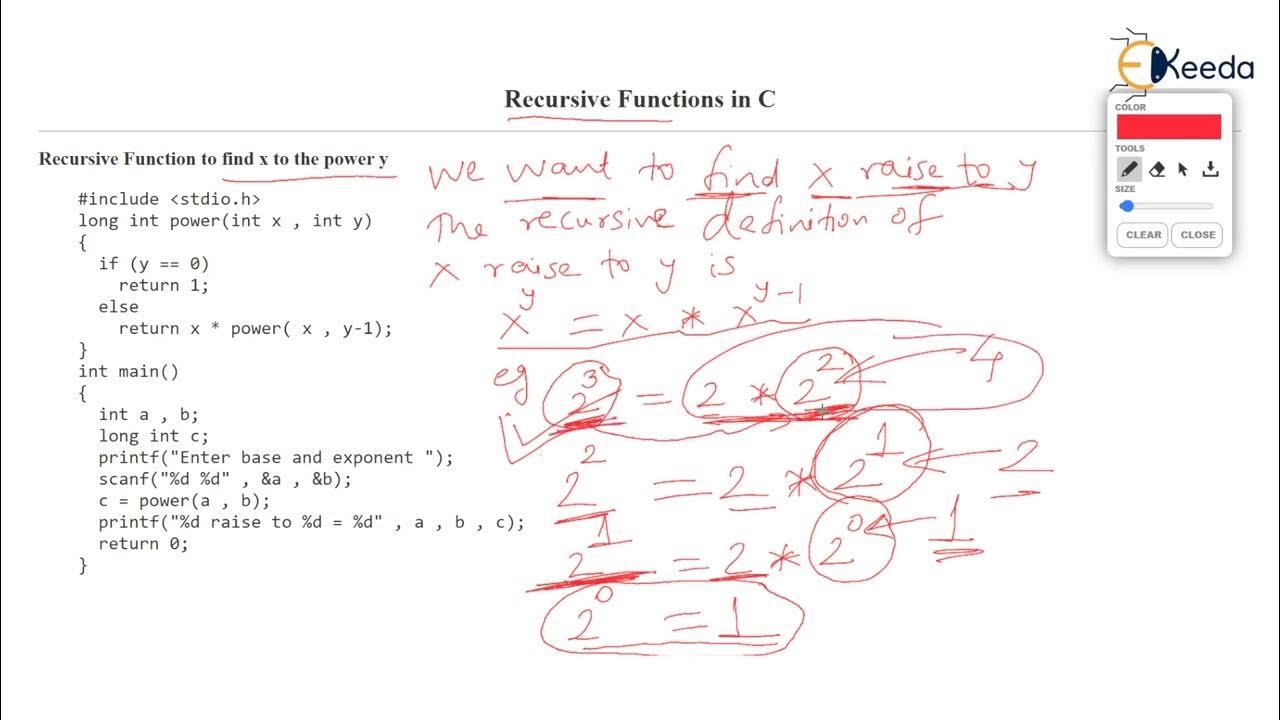 EKeeda
Recursive Functions in C
COLOR
TOOLS
SIZE
CLEAR CLOSE
Recursive Function to find x to the power y
#include <stdio.h>
long int power(int x , int y)
{
if (y == 0)
return 1;
else
return x * power( x , y-1);
}
int main()
{
int a , b;
long int c;
printf("Enter base and exponent ");
scanf("%d %d" , &a , &b);
c = power(a , b);
printf("%d raise to %d = %d" , a , b , c);
return 0;
}
We want to find x raise to y
The recursive definition of
x raise to y is
x^y = x * x^y-1
eg 2^3 = 2 * 2^2 4
2^2 = 2 * 2^1 2
2^1 = 2 * 2^0 1
2^0 = 1